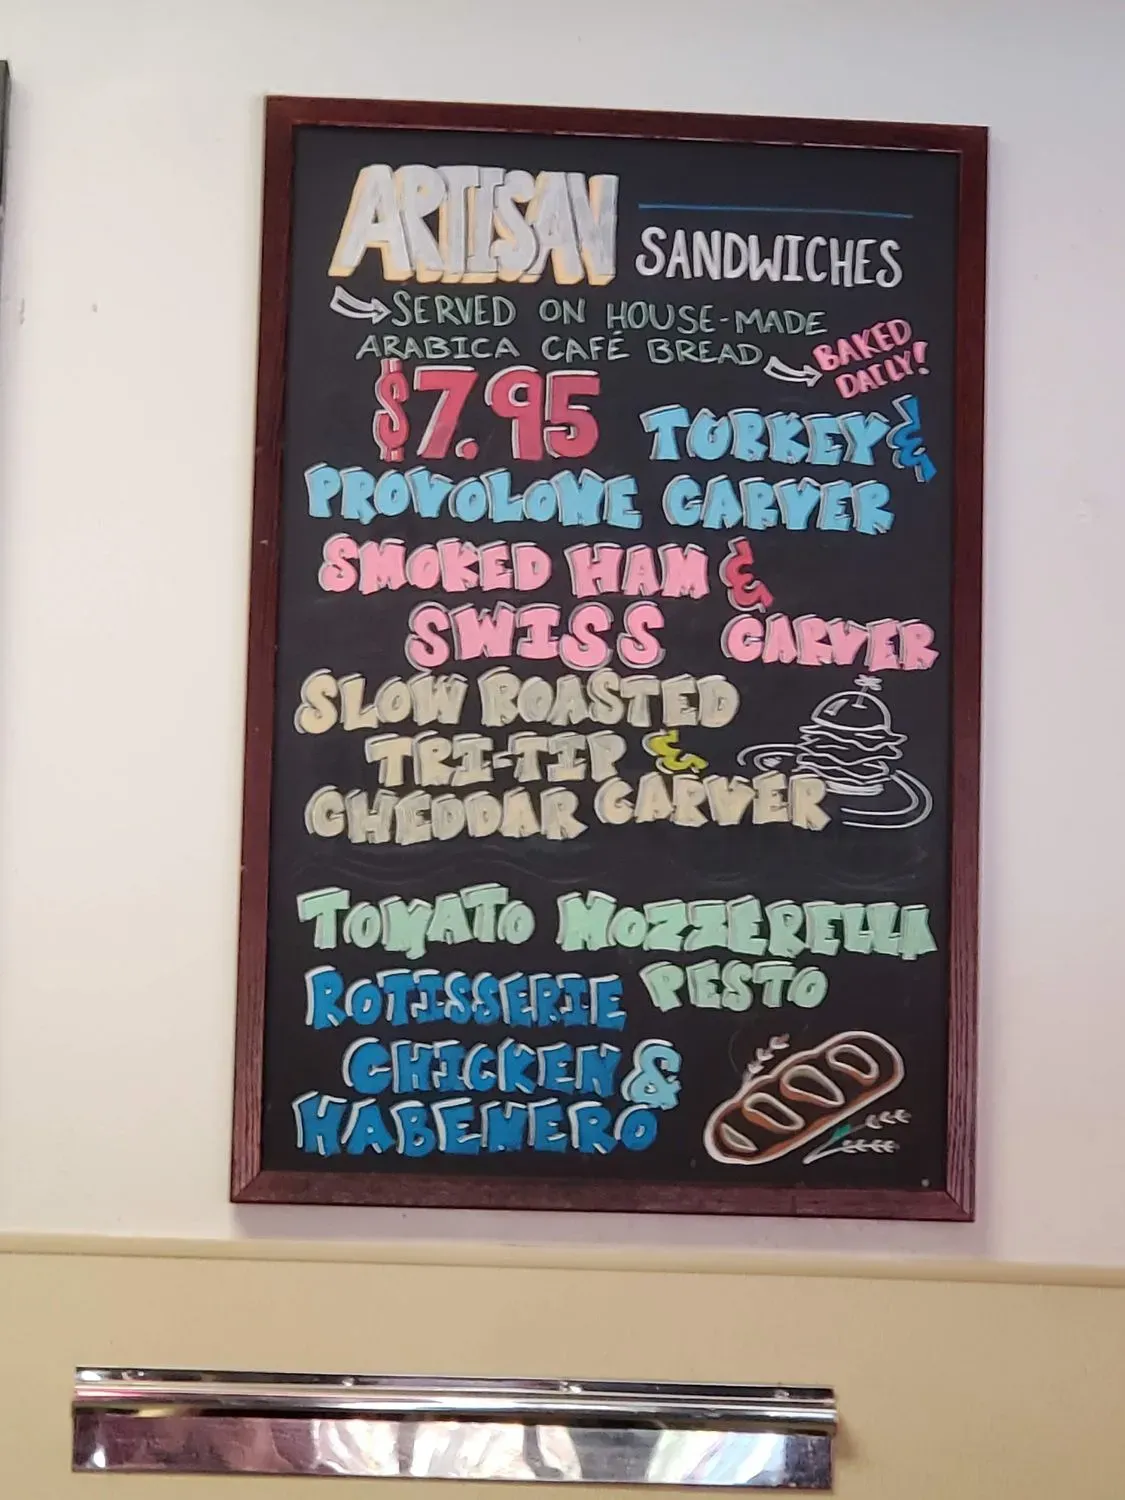 ARTISAN SANDWICHES
SERVED ON HOUSE-MADE
ARABICA CAFÉ BREAD
BAKED
DAILY!
$7.95
TURKEY &
PROVOLONE CARVER
SMOKED HAM &
SWISS CARVER
SLOW ROASTED
TRI-TIP &
CHEDDAR CARVER
TOMATO MOZZERELLA
PESTO
ROTISSERIE
CHICKEN &
HABENERO